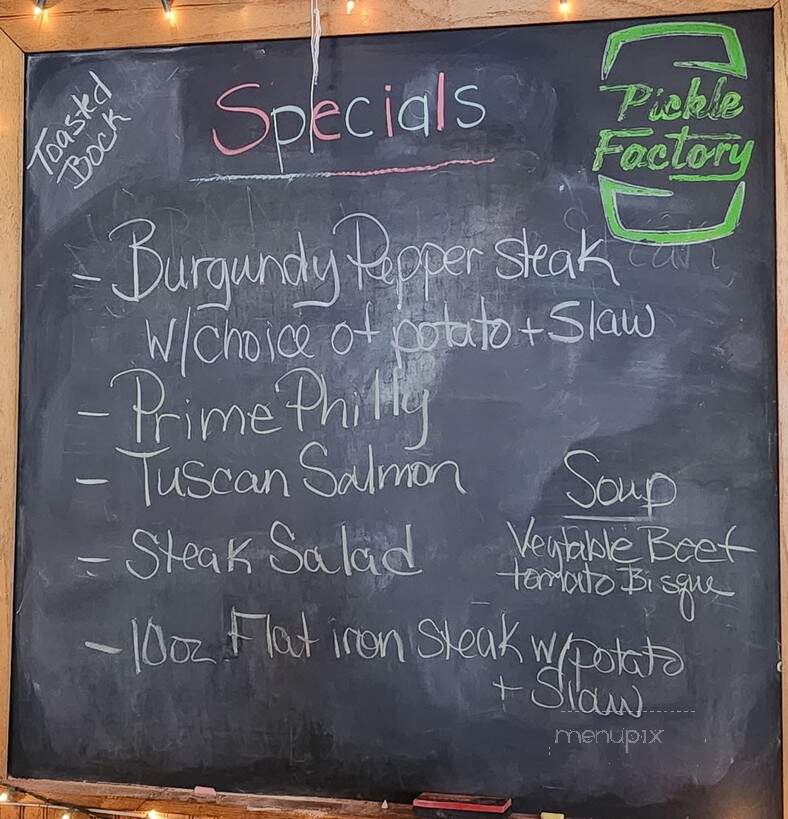 Toasted
Bock
Specials
Pickle
Factory
- Burgundy Pepper Steak
w/choice of potato + Slaw
- Prime Philly
- Tuscan Salmon
- Steak Salad
- 10oz Flat iron Steak w/potato
+ Slaw
Soup
Vegtable Beef
tomato Bisque
menupix